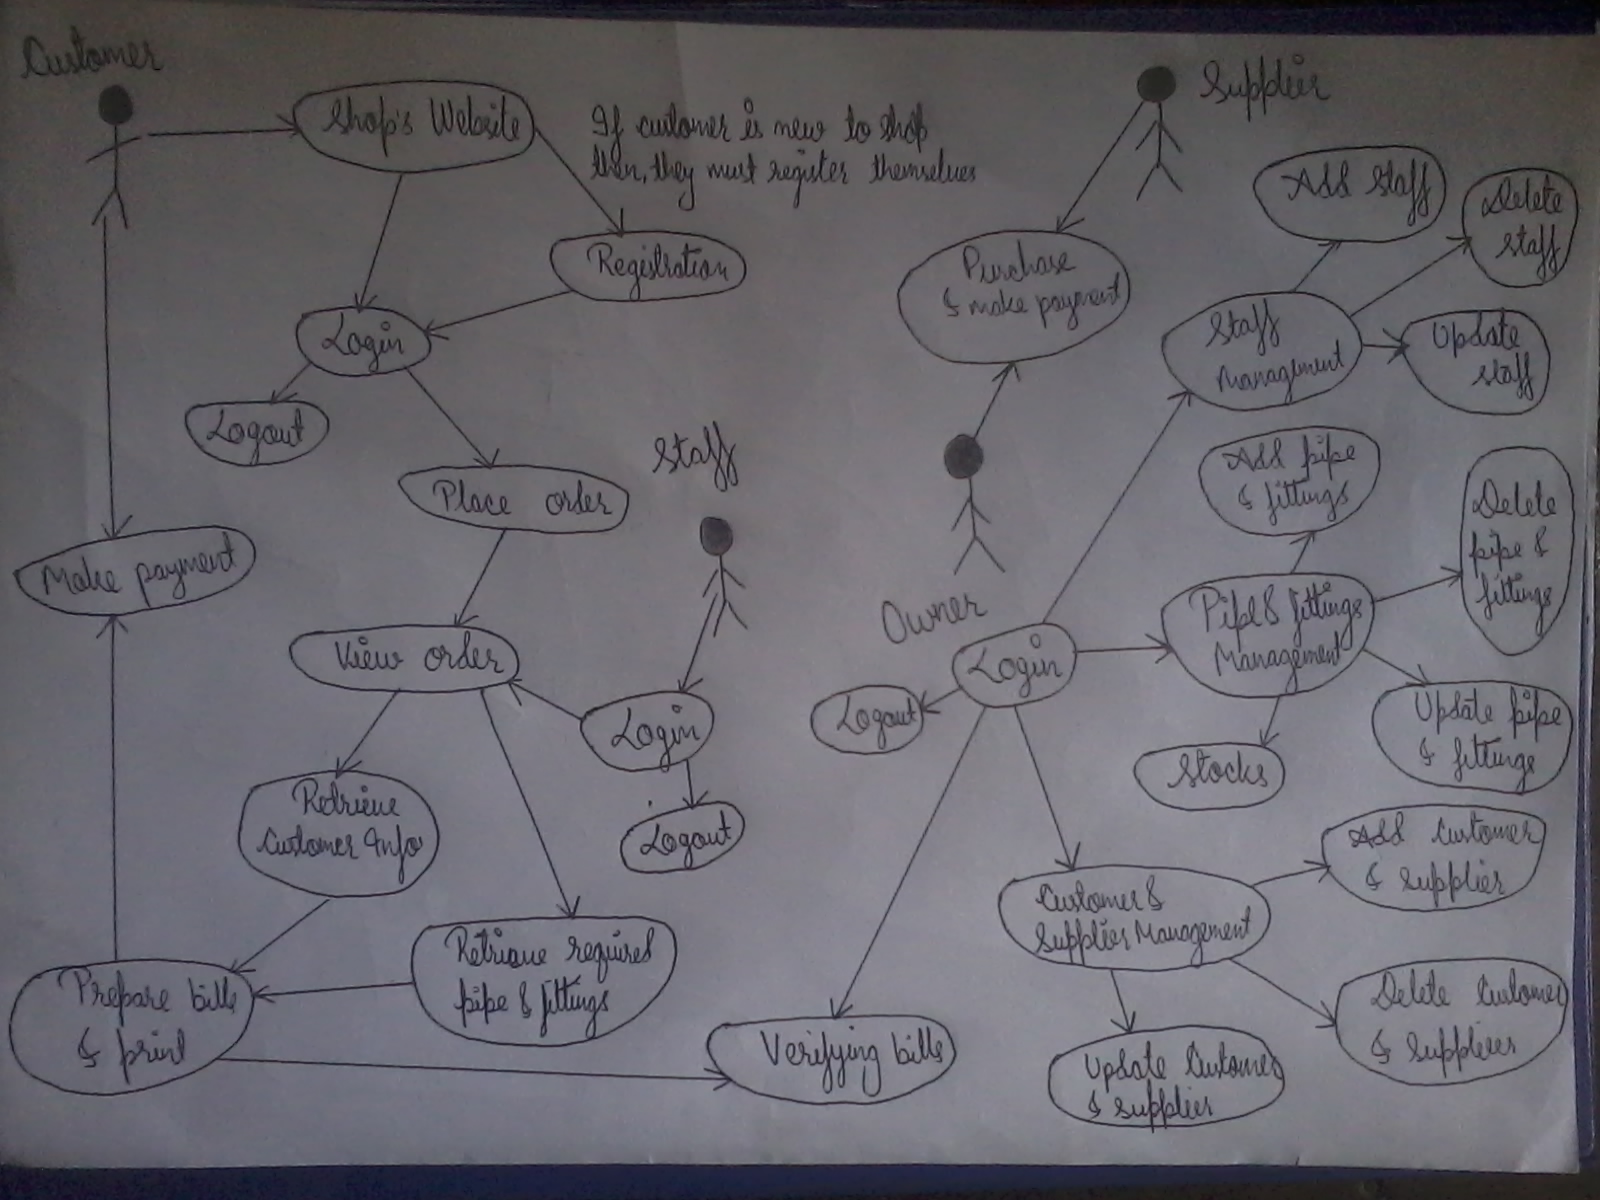 Customer
Shop's Website
If customer is new to shop
then, they must register themselves
Registration
Login
Logout
Place order
Make payment
View order
Staff
Login
Logout
Retrieve
Customer Info
Retrieve required
pipe & fittings
Prepare bills
& print
Verifying bills
Supplier
Purchase
& make payment
Owner
Login
Logout
Staff
Management
Add staff
Delete
staff
Update
staff
Pipe & fittings
Management
Add pipe
& fittings
Delete
pipe &
fittings
Update pipe
& fittings
Stocks
Customer &
Supplier Management
Add Customer
& supplier
Delete Customer
& supplier
Update Customer
& supplier